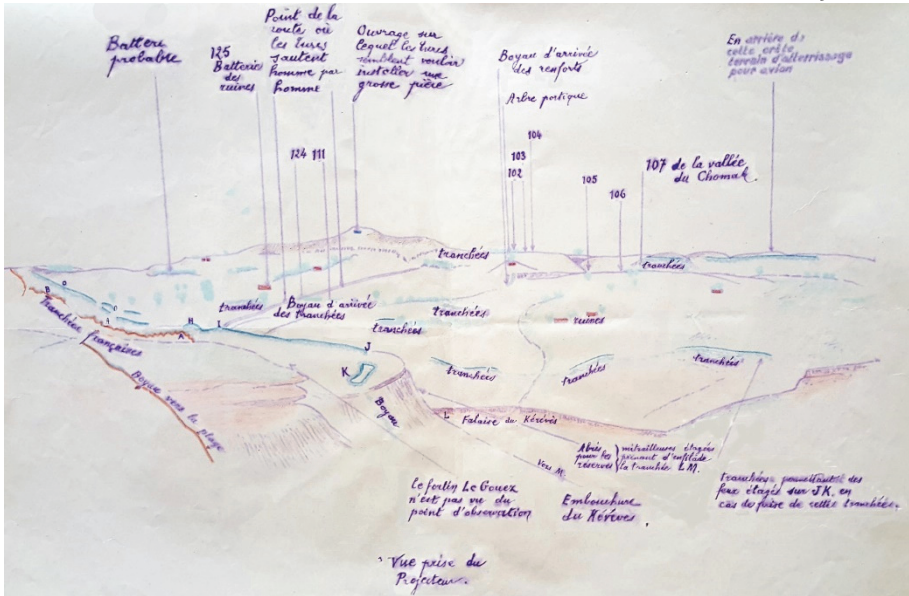 Batterie
probable
125
Batteries
des
ruines
Point de la
route où
les turcs
sautent
homme par
homme
Ouvrage sur
lequel les turcs
semblent vouloir
installer une
grosse pièce
Boyau d'arrivée
des renforts
Arbre portique
En arrière de
cette crête
terrain d'atterrissage
pour avion
124
111
104
103
102
105
106
107 de la vallée
du Chomak.
tranchées
tranchées
tranchées
Boyau d'arrivée
des tranchées
tranchées
tranchées
ruines
B
O
A
H
I
J
K
L
Tranchée françaises
Boyau vers la plage
Boyau
tranchées
tranchées
tranchées
Falaise du Kérévès
Vers M.
Abris
pour les
réserves
mitrailleuses étagées
prenant d'enfilade
la tranchée L.M.
Le fortin Le Gouez
n'est pas vu du
point d'observation
Embouchure
du Kérévès.
tranchées permettant des
feux étagés sur J K. en
cas de prise de cette tranchée.
Vue prise du
Projecteur.